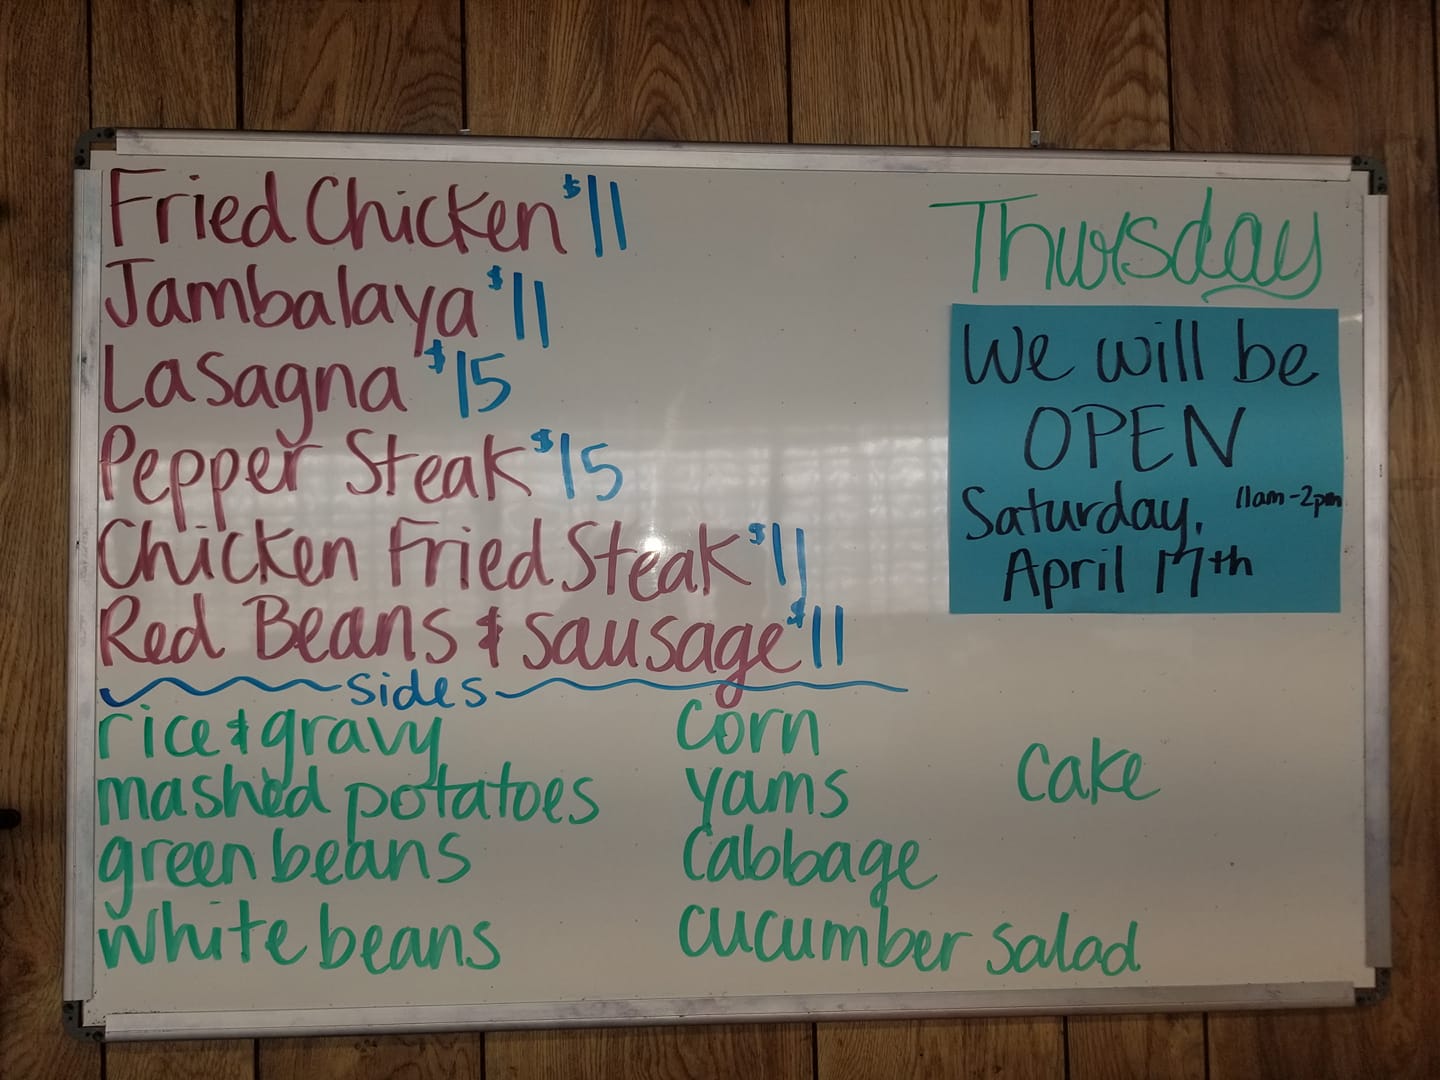 Fried Chicken $11
Jambalaya $11
Lasagna $15
Pepper Steak $15
Chicken Fried Steak $11
Red Beans & sausage $11
sides
rice & gravy
mashed potatoes
green beans
white beans
corn
yams
cabbage
cucumber salad
cake
Thursday
We will be
OPEN
Saturday, 11am-2pm
April 17th